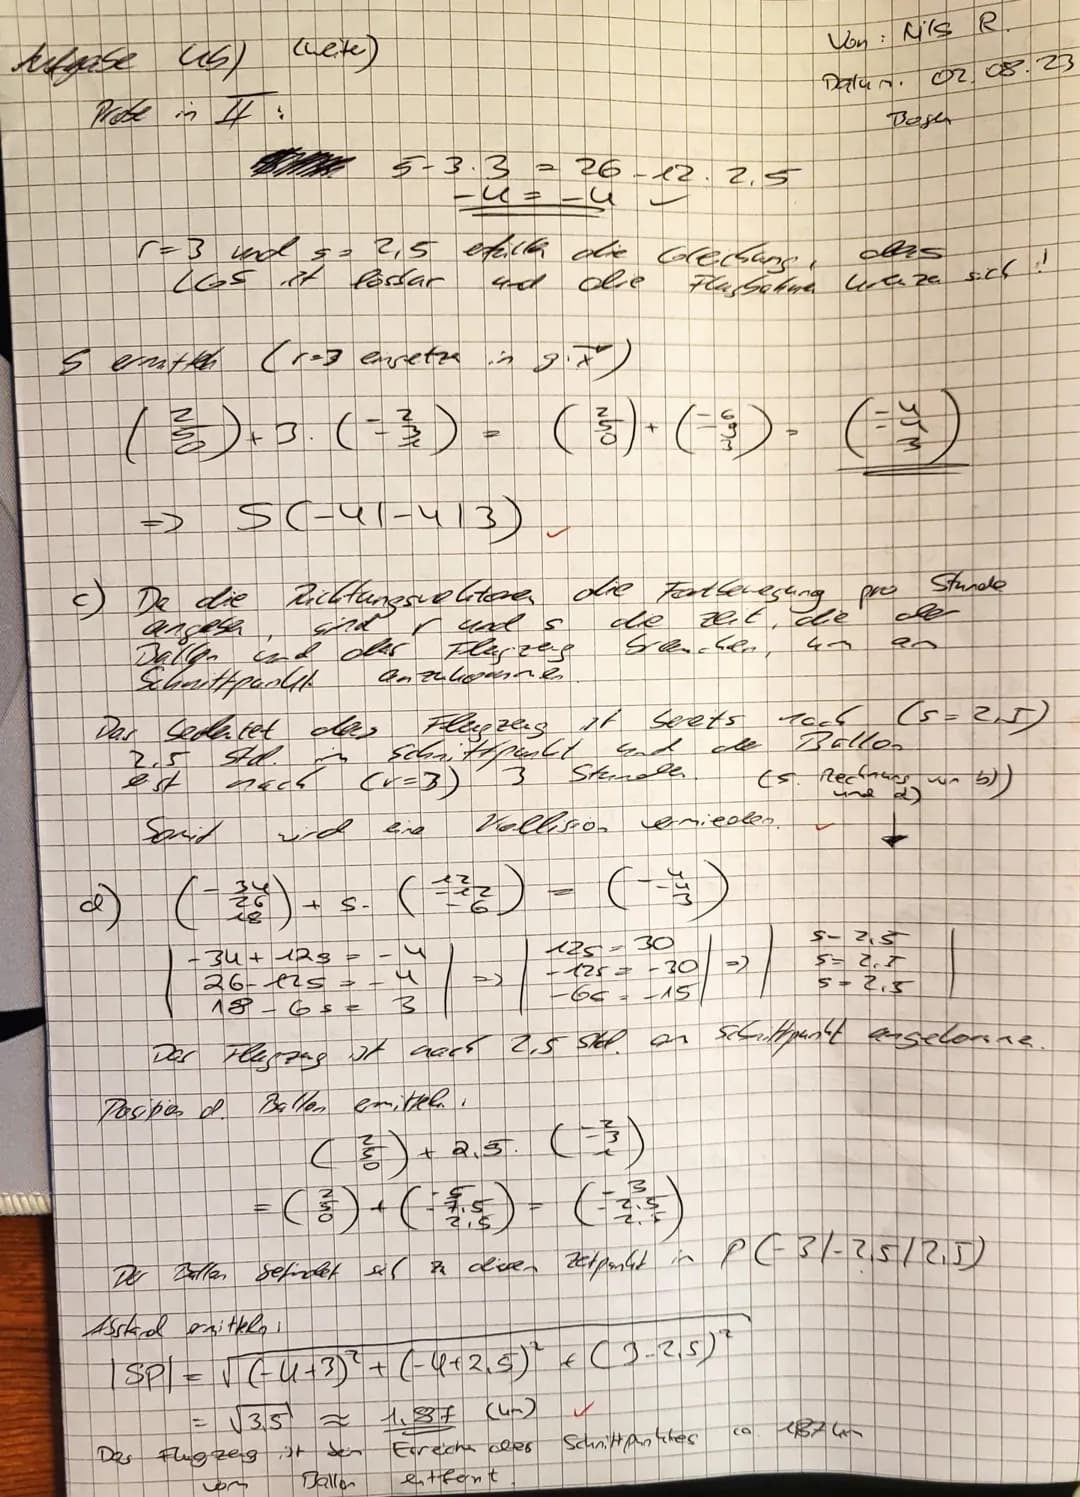 Aufgabe (16) (weiter)
Von: Nils R.
Datum: 02.08.23
Bogen
Probe in II:
5-3·3 = 26-12·2,5
-4 = -4 ✓
r=3 und s=2,5 erfüllen die Gleichung, das
LGS ist lösbar und die Flugbahnen kreuzen sich!
S ermitteln (r=3 einsetzen in g:x⃗)
(2 5 0) + 3·(-2 -3 1) = (2 5 0) + (-6 -9 3) = (-4 -4 3)
=> S(-4|-4|3) ✓
c) Da die Richtungsvektoren die Fortbewegung pro Stunde
angeben, sind r und s die Zeit, die der
Ballon und das Flugzeug brauchen, um am
Schnittpunkt anzukommen.
Das bedeutet das Flugzeug ist bereits nach (s=2,5)
2,5 Std. im Schnittpunkt und der Ballon
erst nach (r=3) 3 Stunden. (s. Rechnung von b))
und d)
Somit wird eine Kollision vermieden. ✓
d) (-34 26 18) + s·(12 -12 -6) = (-4 -4 3)
| -34+12s = -4 | => | 12s = 30 | => | s=2,5 |
| 26-12s = -4 | | -12s = -30 | | s=2,5 |
| 18-6s = 3 | | -6s = -15 | | s=2,5 |
Das Flugzeug ist nach 2,5 Std. am Schnittpunkt angekommen.
Position d. Ballon ermitteln:
(2 5 0) + 2,5·(-2 -3 1)
= (2 5 0) + (-5 -7,5 2,5) = (-3 -2,5 2,5)
Der Ballon befindet sich zu diesem Zeitpunkt in P(-3|-2,5|2,5)
Abstand ermitteln:
|SP| = √((-4+3)²+(-4+2,5)²+(3-2,5)²)
= √3,5 ≈ 1,87 (km) ✓
Das Flugzeug ist beim Erreichen des Schnittpunktes ca 1,87 km
vom Ballon entfernt.